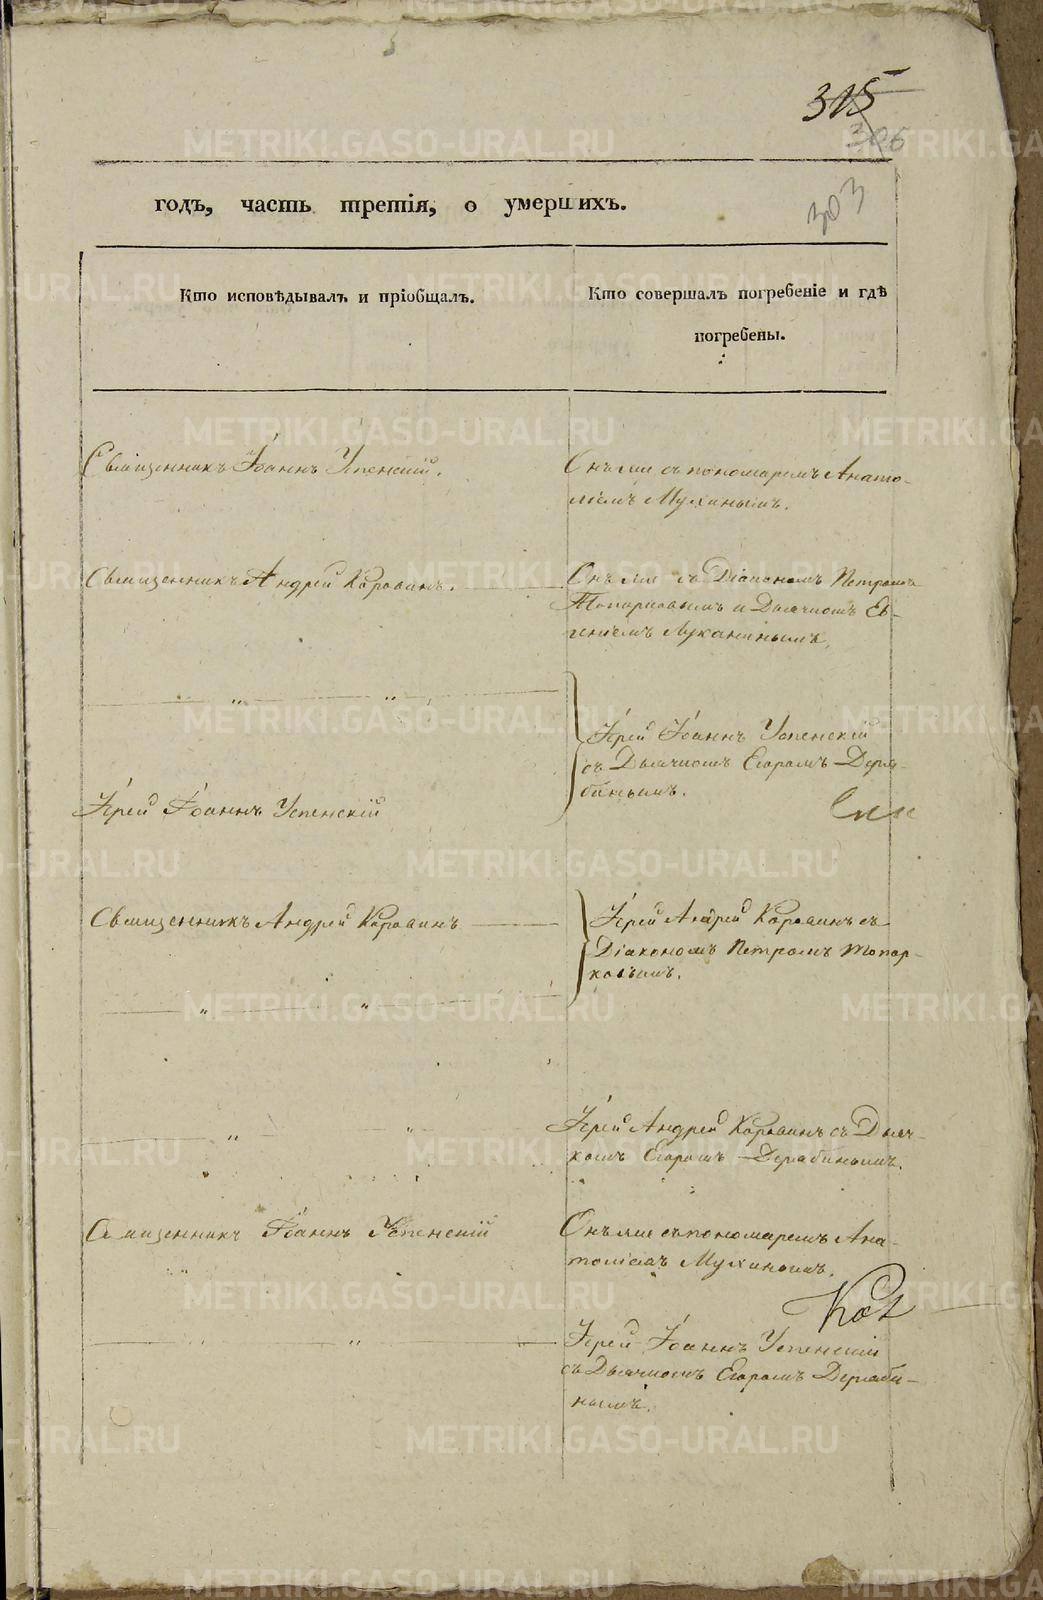 315
306
303
годъ, часть третія, о умершихъ.
Кто исповѣдывалъ и пріобщалъ.
Кто совершалъ погребеніе и гдѣ
погребены.
Священникъ Іоаннъ Успенскій.
Онъ же съ пономаремъ Анато-
ліемъ Мухинымъ.
Священникъ Андрей Коровинъ.
Онъ же съ Діакономъ Петромъ
Топорковымъ и Дьячкомъ Ев-
геніемъ Луканинымъ.
Іерей Іоаннъ Успенскій
съ Дьячкомъ Егоромъ Деря-
бинымъ.
Іерей Іоаннъ Успенскій
Священникъ Андрей Коровинъ
Іерей Андрей Коровинъ съ
Діакономъ Петромъ Топор-
ковымъ.
Іерей Андрей Коровинъ съ Дьяч-
комъ Егоромъ Дерябинымъ.
Священникъ Іоаннъ Успенскій
Онъ же съ пономаремъ Ана-
толіемъ Мухинымъ.
Іерей Іоаннъ Успенскій
съ Дьячкомъ Егоромъ Деряби-
нымъ.
METRIKI.GASO-URAL.RU